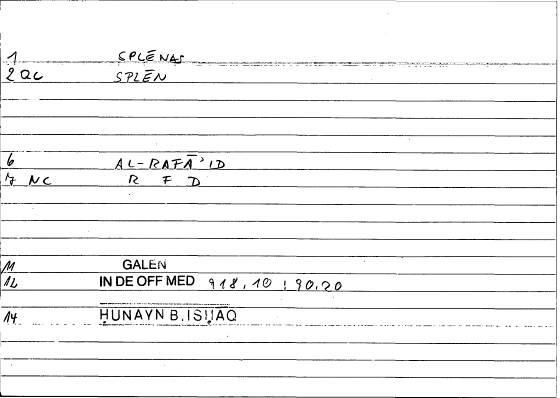 1 SPLĒNAS
2 QC SPLĒN
6 AL-RAFĀʾID
7 NC R F D
11 GALEN
12 IN DE OFF MED 918,10 : 90,20
14 ḤUNAYN B. ISḤĀQ